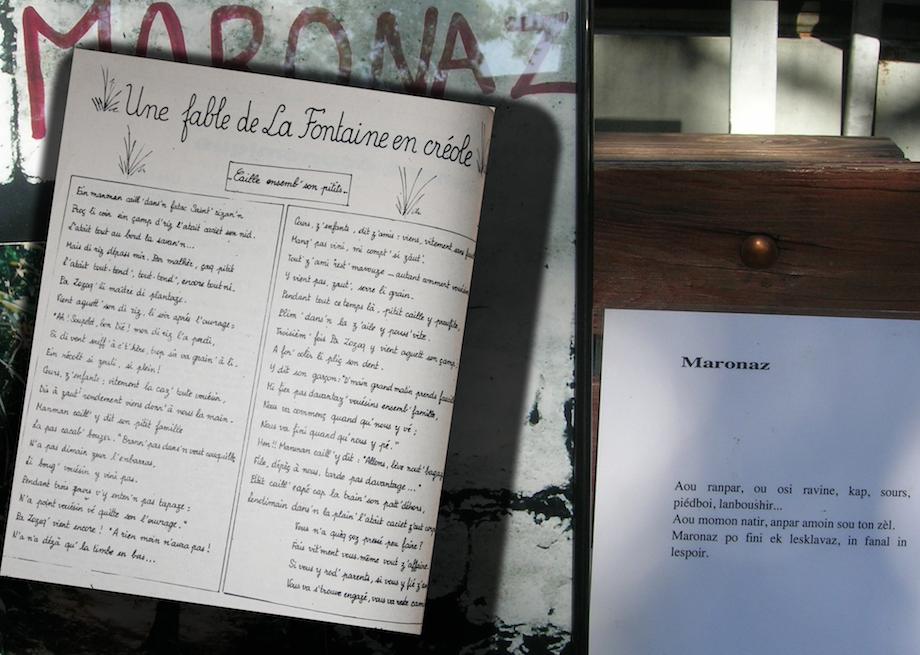 MARONAZ
Une fable de La Fontaine en créole
- Caille ensemb' son pitits -
Ein manman caill' dans'n fatac Saint' sizan'n
Près li coin ein camp d'riz l'était caciet son nid.
L'était tout au bord la savan'n...
Mais di riz dépass mir. Par malhèr, çaq pitit
l'était tout-tend', tout-tend', encore tout-ni.
Pa Zozeq' li maître di plantaze.
Vient aguett' son di riz, li soir après l'ouvraze :
"Ah! Souplet, bon dié! mon di riz l'a prêti,
Si di vent souff' à c't'hère, trop sir va grain' à li.
Ein récolt' si zouti, si plein!
Cours, z'enfants; vitement la caz' toute vouésin,
Dis à zaut' rondement viens donn' à nous la main.
Manman caill' y dit son pitit famille
La pas cacab' bouzer. "Brann' pas dans'n vout couquille
N'a pas dimain zour l'embarras,
Li boug' vouésin y vini pas.
Pendant trois zours y'y enten'n pas tapaze :
N'a point vouésin vé quitte son l'ouvraze."
Pa Zozeq' vient encore! "A rien moin n'aura pas!
N'a n'a déjà qu' la timbe en bas...
Cours, z'enfants, dit z'amis : viens, vitement sans
Manq' pas vini, mi compt' si zaut'.
Tout z'ami rest' mavouze _ autant comment
Y vient pas, zaut', serre li grain.
Pendant tout ce temps là, pitit caille y proufite,
Plim' dans'n la z'aile y pouss' vite.
Troisièm' fois Pa Zozeq y vient aguett son camp.
A for' colèr li plis son dent.
Y dit son garçon: "D'main grand matin prends
Mi fier pas davantaz' vouésins ensemb' famille,
Nous va commenç quand qu' nous y vé ;
Nous va fini quand qu' nous y pé."
Hon!! Manman caill' y dit : "Allons, lève vout' bagaz
File, dipêq à nous, tarde pas davantaze..."
Pitit caill' rapé cap la train' son patt' déhors,
Lendimain dans'n la plain' l'était caciet zaut'
Vous n'a quiq sez pressé pou faire?
Fais vit'ment vous-même vout z'affaire.
Si vous y rod' parents, si vous y fié
Vous va s'trouve engazé, vous va reste
Maronaz
Aou ranpar, ou osi ravine, kap, sours,
piédboi, lanboushir...
Aou momon natir, anpar amoin sou ton zèl.
Maronaz po fini ek lesklavaz, in fanal in
lespoir.